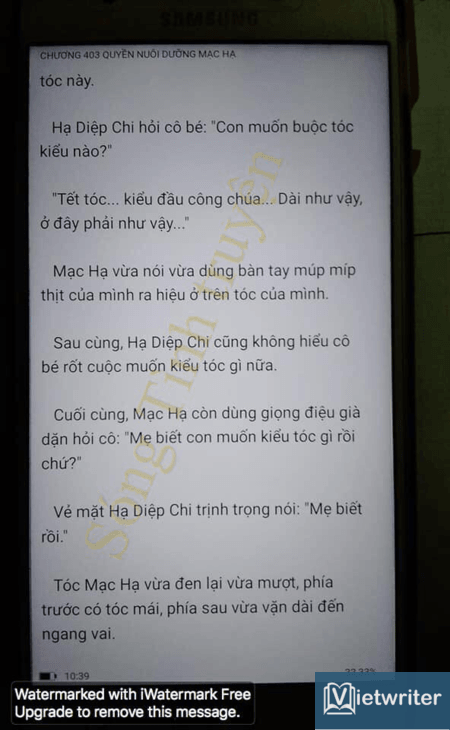 SAMSUNG
CHƯƠNG 403 QUYỀN NUÔI DƯỠNG MẠC HẠ
tóc này.
Hạ Diệp Chi hỏi cô bé: "Con muốn buộc tóc
kiểu nào?"
"Tết tóc... kiểu đầu công chúa... Dài như vậy,
ở đây phải như vậy..."
Mạc Hạ vừa nói vừa dùng bàn tay múp míp
thịt của mình ra hiệu ở trên tóc của mình.
Sau cùng, Hạ Diệp Chi cũng không hiểu cô
bé rốt cuộc muốn kiểu tóc gì nữa.
Cuối cùng, Mạc Hạ còn dùng giọng điệu già
dặn hỏi cô: "Mẹ biết con muốn kiểu tóc gì rồi
chứ?"
Vẻ mặt Hạ Diệp Chi trịnh trọng nói: "Mẹ biết
rồi."
Tóc Mạc Hạ vừa đen lại vừa mượt, phía
trước có tóc mái, phía sau vừa vặn dài đến
ngang vai.
Sóng Tình truyện
10:39
Watermarked with iWatermark Free
Upgrade to remove this message.
Vietwriter